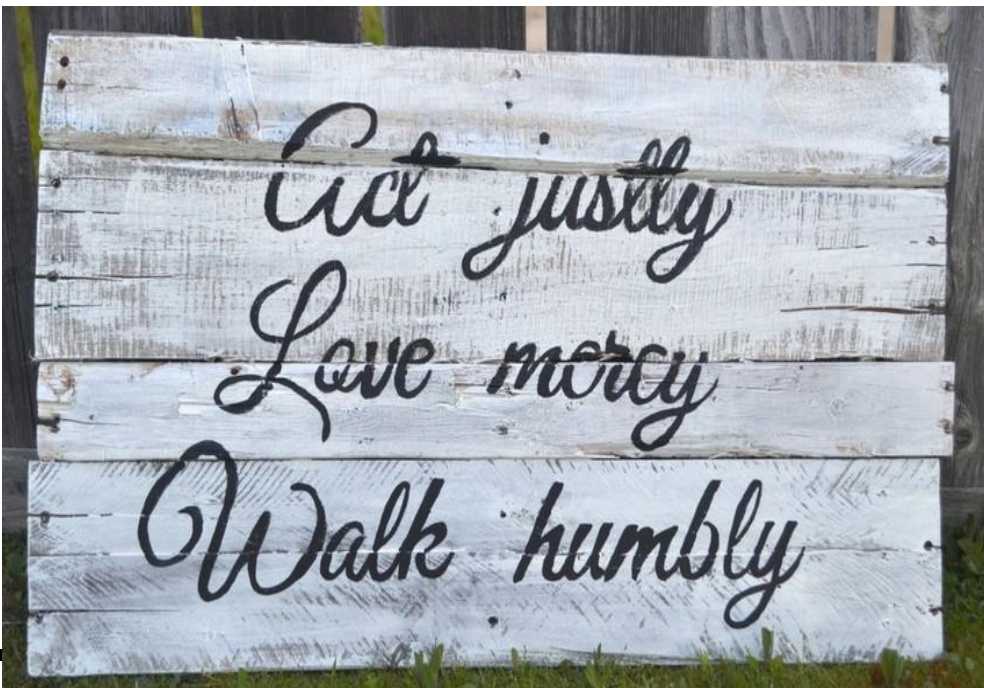 Act justly
Love mercy
Walk humbly